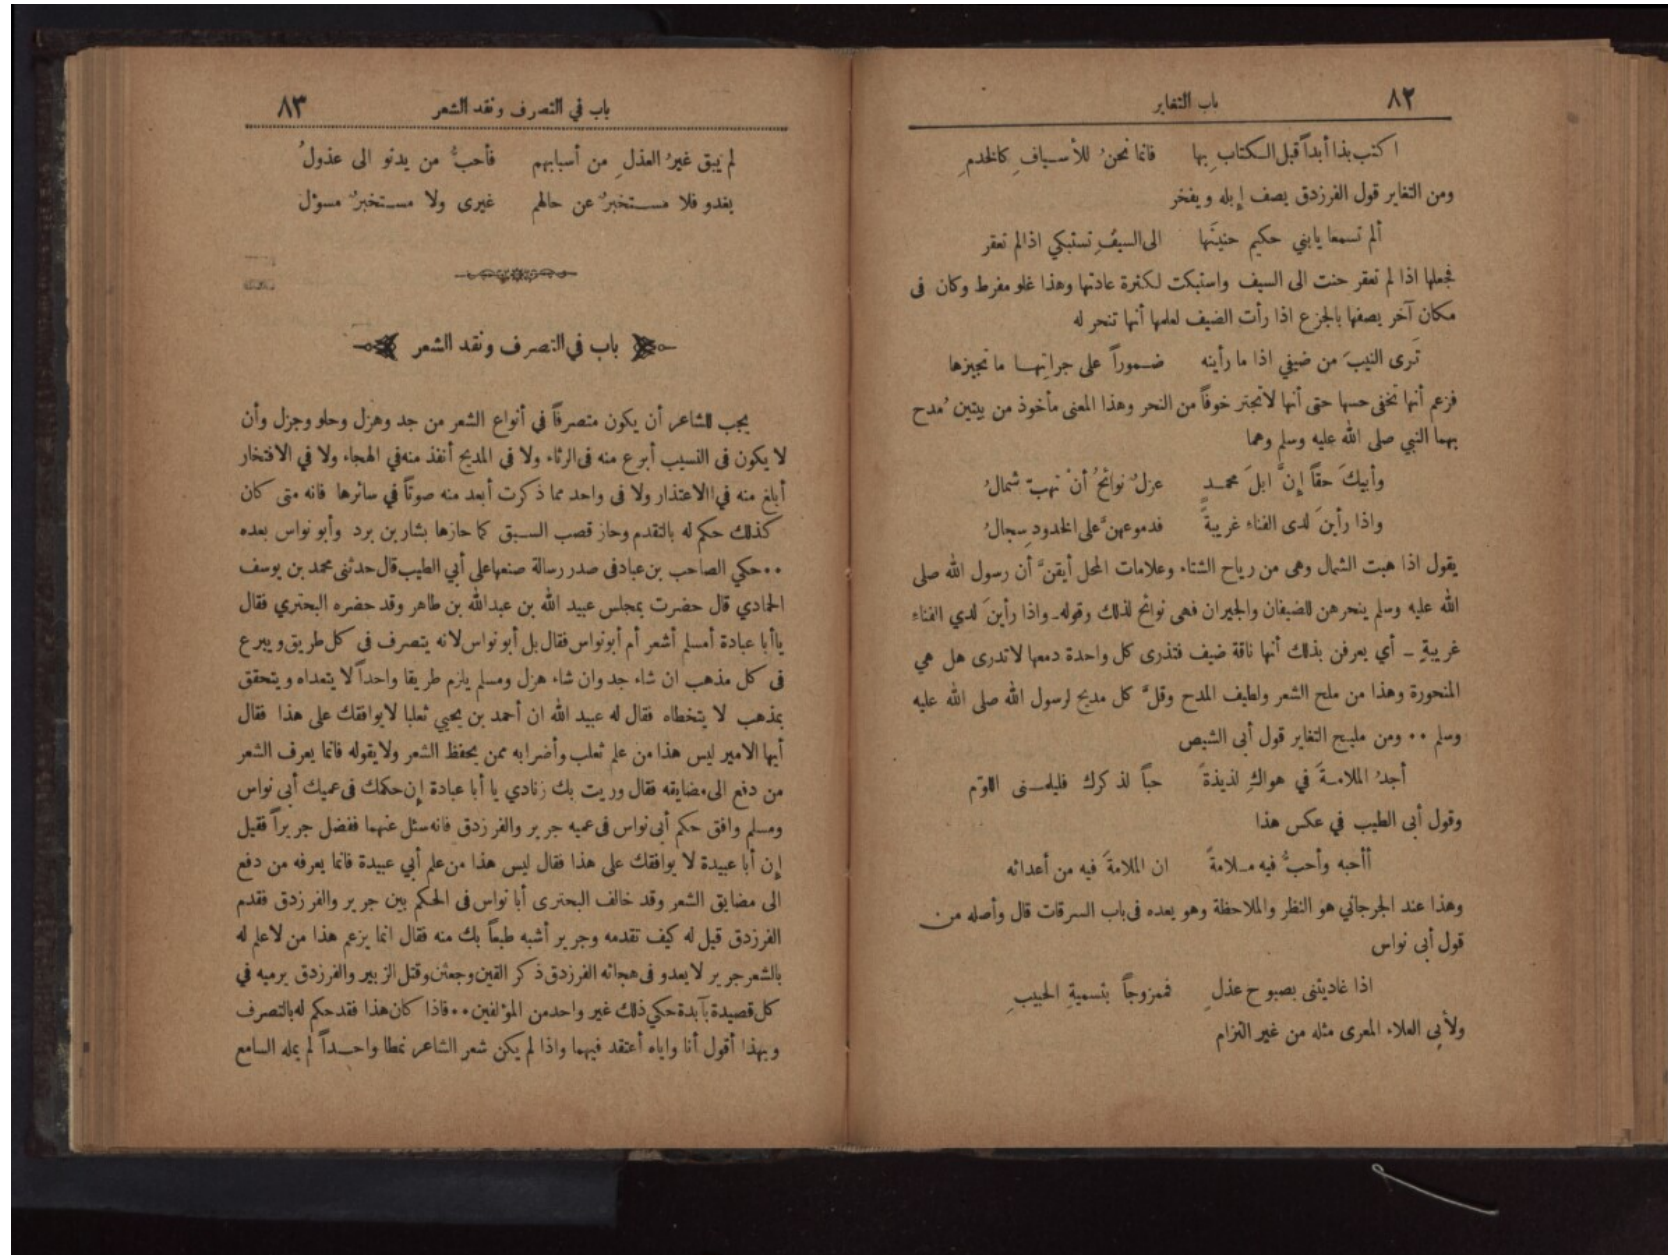 ٨٢ باب التغاير
اكتب بذا أبداً قبل الكتابِ بها فانما نحنُ للأسيافِ كالخدمِ
ومن التغاير قول الفرزدق يصف إبله ويفخر
ألم تسمعا يابني حكيم حنينَها الى السيفِ تستبكي اذالم تعقر
فجعلها اذا لم تعقر حنت الى السيف واستبكت لكثرة عادتها وهذا غلو مفرط وكان فى
مكان آخر يصفها بالجزع اذا رأت الضيف لعلمها أنها تنحر له
تَرى النيبَ من ضيفي اذا ما رأينه ضموراً على جراتِها ما تجيزها
فزعم أنها تخفى حسها حتى أنها لاتجتر خوفاً من النحر وهذا المعنى مأخوذ من بيتين مُدح
بهما النبي صلى الله عليه وسلم وهما
وأبيكَ حقاً إنَّ ابلَ محمدٍ عزلٌ نوائحُ أنْ تهبّ شمالُ
واذا رأينَ لدى الفناءِ غريبةً فدموعهنَّ على الخدودِ سجالُ
يقول اذا هبت الشمال وهى من رياح الشتاء وعلامات المحل أيقنَّ أن رسول الله صلى
الله عليه وسلم ينحرهن للضيفان والجيران فهى نوائح لذلك وقوله ـ واذا رأينَ لدي الفناء
غريبةٍ ـ أي يعرفن بذلك أنها ناقة ضيف فتذرى كل واحدة دمعها لاتدرى هل هي
المنحورة وهذا من ملح الشعر ولطيف المدح وقلَّ كل مديح لرسول الله صلى الله عليه
وسلم ٠٠ ومن مليح التغاير قول أبى الشيص
أجدُ الملامةَ في هواكِ لذيذةً حباً لذكرك فليلمنى اللوّم
وقول أبى الطيب في عكس هذا
أأحبه وأحبُّ فيه ملامةً ان الملامةَ فيه من أعدائه
وهذا عند الجرجاني هو النظر والملاحظة وهو يعده فى باب السرقات قال وأصله من
قول أبى نواس
اذا غاديتنى بصبوح عذلٍ فممزوجاً بتسميةِ الحبيبِ
ولأبي العلاء المعرى مثله من غير التزام
باب في التصرف ونقد الشعر ٨٣
لم يَبق غيرُ العذلِ من أسبابهم فأحبُّ من يدنو الى عذولُ
يغدو فلا مستخبرٌ عن حالهم غيرى ولا مستخبرٌ مسؤل
باب في التصرف ونقد الشعر
يجب للشاعر أن يكون متصرفاً في أنواع الشعر من جد وهزل وحلو وجزل وأن
لا يكون فى النسيب أبرع منه فى الرثاء ولا فى المديح أنفذ منه في الهجاء ولا في الافتخار
أبلغ منه في الاعتذار ولا فى واحد مما ذكرت أبعد منه صوتاً في سائرها فانه متى كان
كذلك حكم له بالتقدم وحاز قصب السبق كما حازها بشار بن برد وأبو نواس بعده
٠٠ حكي الصاحب بن عباد فى صدر رسالة صنعها على أبي الطيب قال حدثنى محمد بن يوسف
الحمادي قال حضرت بمجلس عبيد الله بن عبدالله بن طاهر وقد حضره البحتري فقال
ياأبا عبادة أمسلم أشعر أم أبونواس فقال بل أبو نواس لانه يتصرف فى كل طريق ويبرع
فى كل مذهب ان شاء جد وان شاء هزل ومسلم يلزم طريقا واحداً لا يتعداه ويتحقق
بمذهب لا يتخطاه فقال له عبيد الله ان أحمد بن يحيي ثعلبا لايوافقك على هذا فقال
أيها الامير ليس هذا من علم ثعلب وأضرابه ممن يحفظ الشعر ولايقوله فانما يعرف الشعر
من دفع الى مضايقه فقال وريت بك زنادي يا أبا عبادة إن حكمك فى عميك أبى نواس
ومسلم وافق حكم أبى نواس فى عميه جرير والفرزدق فانه سئل عنهما ففضل جريراً فقيل
إن أبا عبيدة لا يوافقك على هذا فقال ليس هذا من علم أبي عبيدة فانما يعرفه من دفع
الى مضايق الشعر وقد خالف البحترى أبا نواس فى الحكم بين جرير والفرزدق فقدم
الفرزدق قيل له كيف تقدمه وجرير أشبه طبعاً بك منه فقال انما يزعم هذا من لاعلم له
بالشعر جرير لا يعدو فى هجائه الفرزدق ذكر القين وجعثن وقتل الزبير والفرزدق يرميه في
كل قصيدة بآبدة حكي ذلك غير واحد من المؤلفين ٠٠ فاذا كان هذا فقد حكم له بالتصرف
وبهذا أقول أنا واياه أعتقد فيهما واذا لم يكن شعر الشاعر نمطا واحداً لم يمله السامع